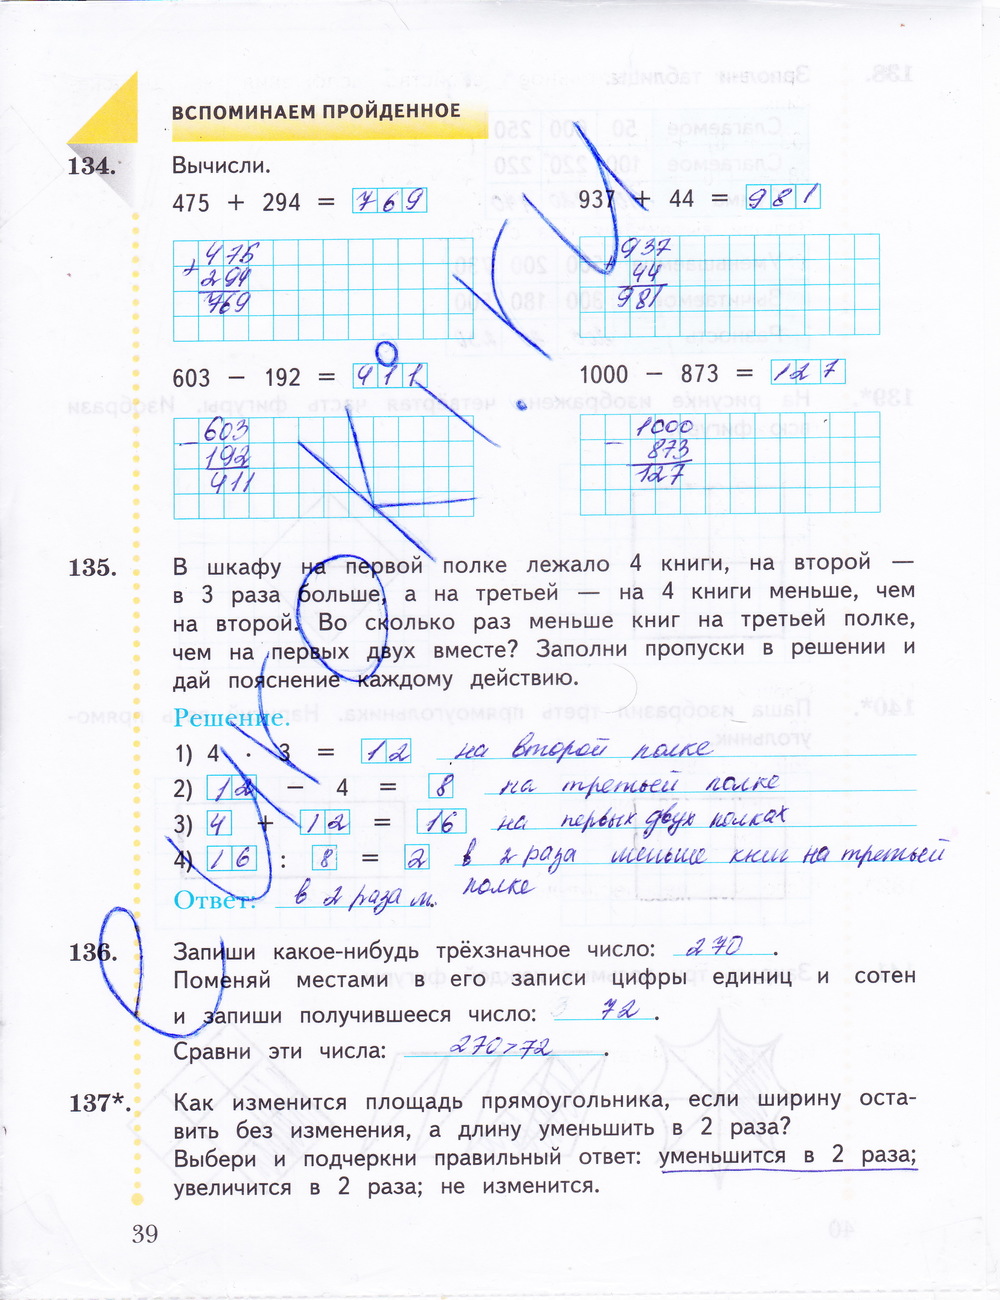 ВСПОМИНАЕМ ПРОЙДЕННОЕ
134. Вычисли.
475 + 294 = 769
937 + 44 = 981
+ 475
294
769
+ 937
44
981
603 − 192 = 411
1000 − 873 = 127
− 603
192
411
− 1000
873
127
135. В шкафу на первой полке лежало 4 книги, на второй —
в 3 раза больше, а на третьей — на 4 книги меньше, чем
на второй. Во сколько раз меньше книг на третьей полке,
чем на первых двух вместе? Заполни пропуски в решении и
дай пояснение каждому действию.
Решение.
1) 4 · 3 = 12 на второй полке
2) 12 − 4 = 8 на третьей полке
3) 4 + 12 = 16 на первых двух полках
4) 16 : 8 = 2 в 2 раза меньше книг на третьей
полке
Ответ: в 2 раза м.
136. Запиши какое-нибудь трёхзначное число: 270.
Поменяй местами в его записи цифры единиц и сотен
и запиши получившееся число: 72.
Сравни эти числа: 270 > 72.
137*. Как изменится площадь прямоугольника, если ширину оста-
вить без изменения, а длину уменьшить в 2 раза?
Выбери и подчеркни правильный ответ: уменьшится в 2 раза;
увеличится в 2 раза; не изменится.
39